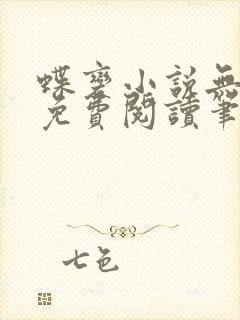 蝶变小说無
免費閱讀筆
七色